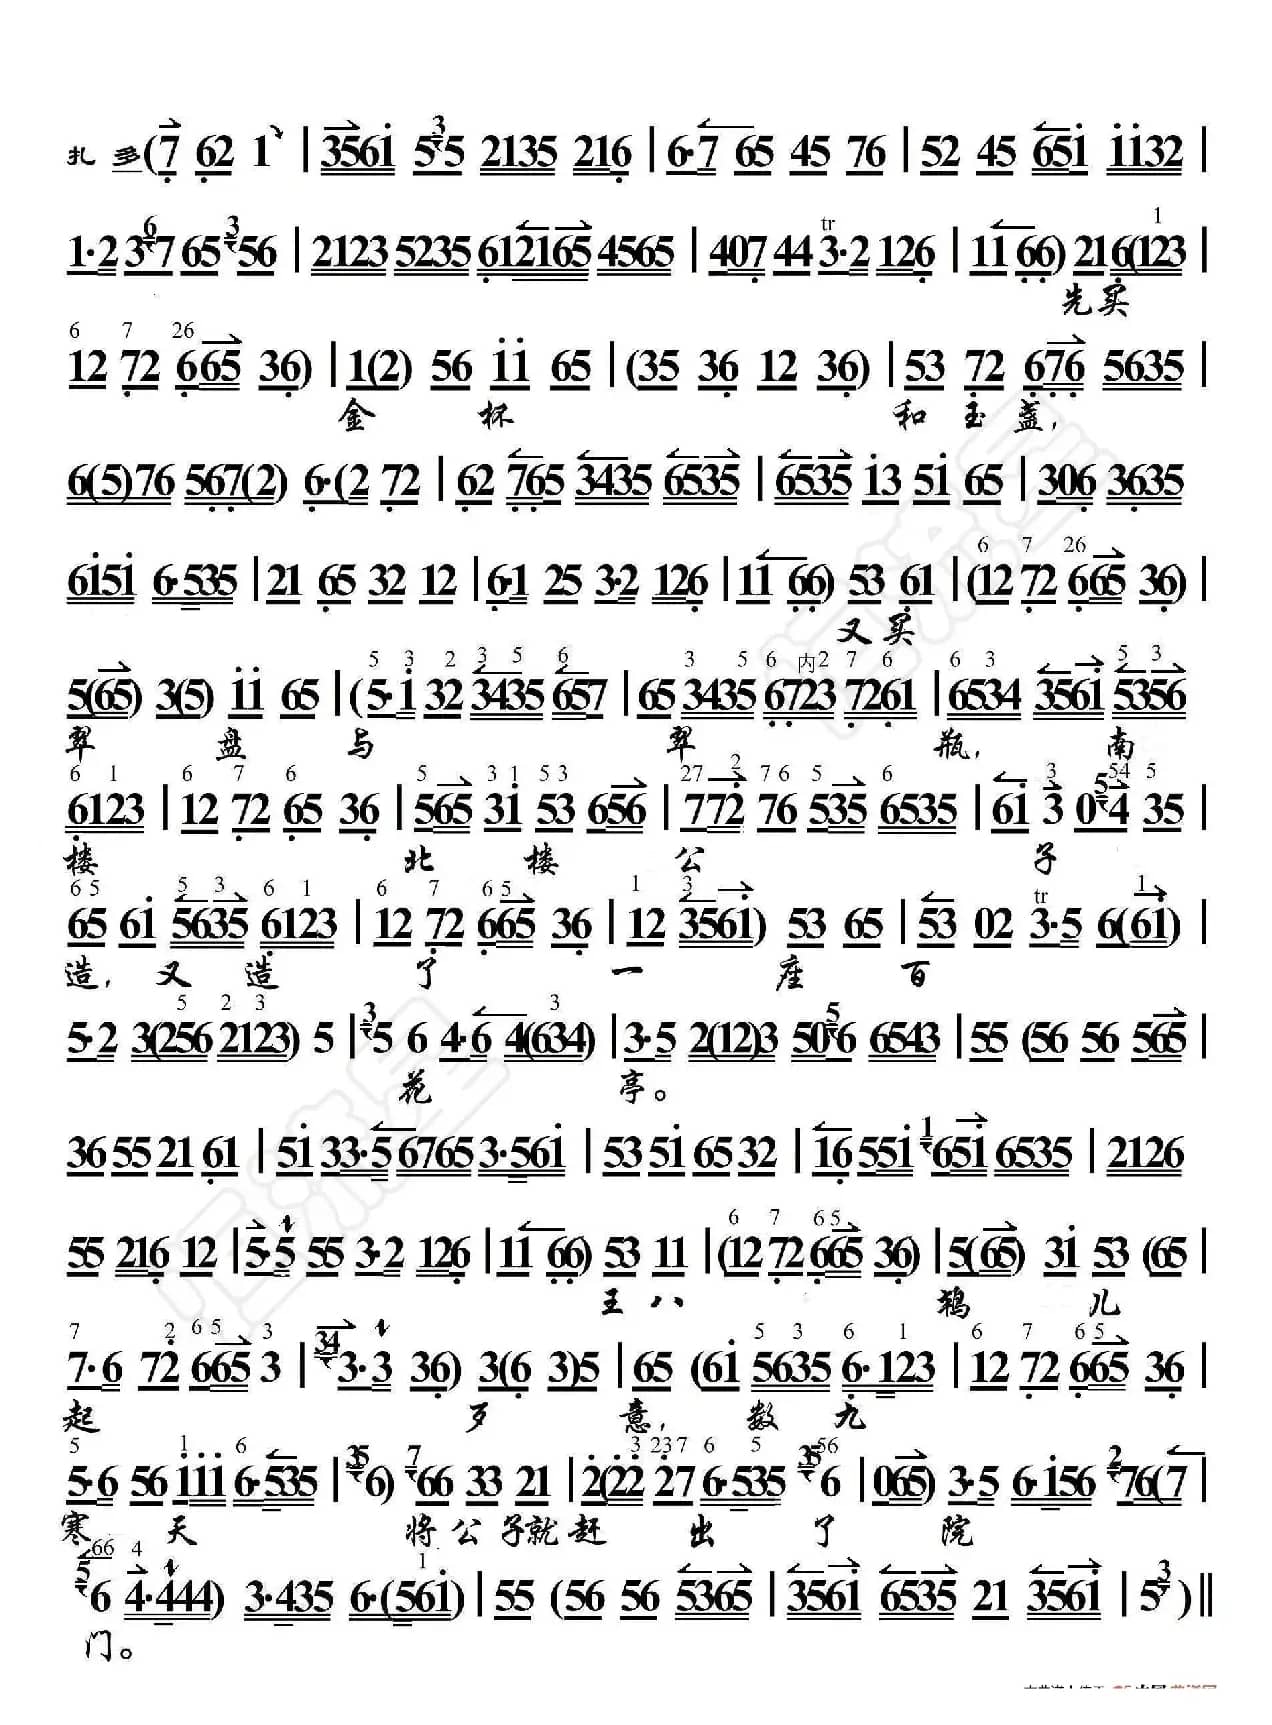 扎 多(7 62 1 | 3561 5 35 2135 216 | 6·7 65 45 76 | 52 45 651 1132 |
1·2 3 67 65 3 56 | 2123 5235 612165 4565 | 407 44 tr 3·2 126 | 11 66) 216(123 |
先买
12 72 665 36) | 1(2) 56 11 65 | (35 36 12 36) | 53 72 676 5635 |
金 杯 和 玉 盏,
6(5)76 567(2) 6·(2 72 | 62 765 3435 6535 | 6535 13 51 65 | 306 3635
6151 6·535 | 21 65 32 12 | 6·1 25 3·2 126 | 11 66) 53 61 | (12 72 665 36) |
又 买
5(65) 3(5) 11 65 | (5·1 32 3435 657 | 65 3435 6723 7261 | 6534 3561 5356
翠 盘 与 翠 瓶, 南
6123 | 12 72 65 36 | 565 31 53 656 | 772 76 535 6535 | 61 3 0 5 4 35 |
楼 北 楼 公 子
65 61 5635 6123 | 12 72 665 36 | 12 3561) 53 65 | 53 02 tr 3·5 6(61) |
造, 又 造 了 一 座 百
5·2 3(256 2123) 5 | 3 5 6 4·6 4(634) | 3·5 2(12)3 50 5 6 6543 | 55 (56 56 565 |
花 亭。
36 55 21 61 | 51 33·5 6765 3·561 | 53 51 65 32 | 16 551 1 651 6535 | 2126
55 216 12 | 5·5 55 3·2 126 | 11 66) 53 11 | (12 72 665 36) | 5(65) 31 53 (65 |
王 八 鸨 儿
7·6 72 665 3 | 34 3·3 36) 3(6 3)5 | 65 (61 5635 6·123 | 12 72 665 36 |
起 歹 意, 数 九
5·6 56 111 6·535 | 35 6) 7 66 33 21 | 2(22 27 6·535 35 6 | 065) 3·5 6·156 2 76(7 |
寒 天 将 公 子 就 赶 出 了 院
5 6 4·444) 3·435 6·(561 | 55 (56 56 5365 | 3561 6535 21 3561 | 5 3 ) ‖
门。